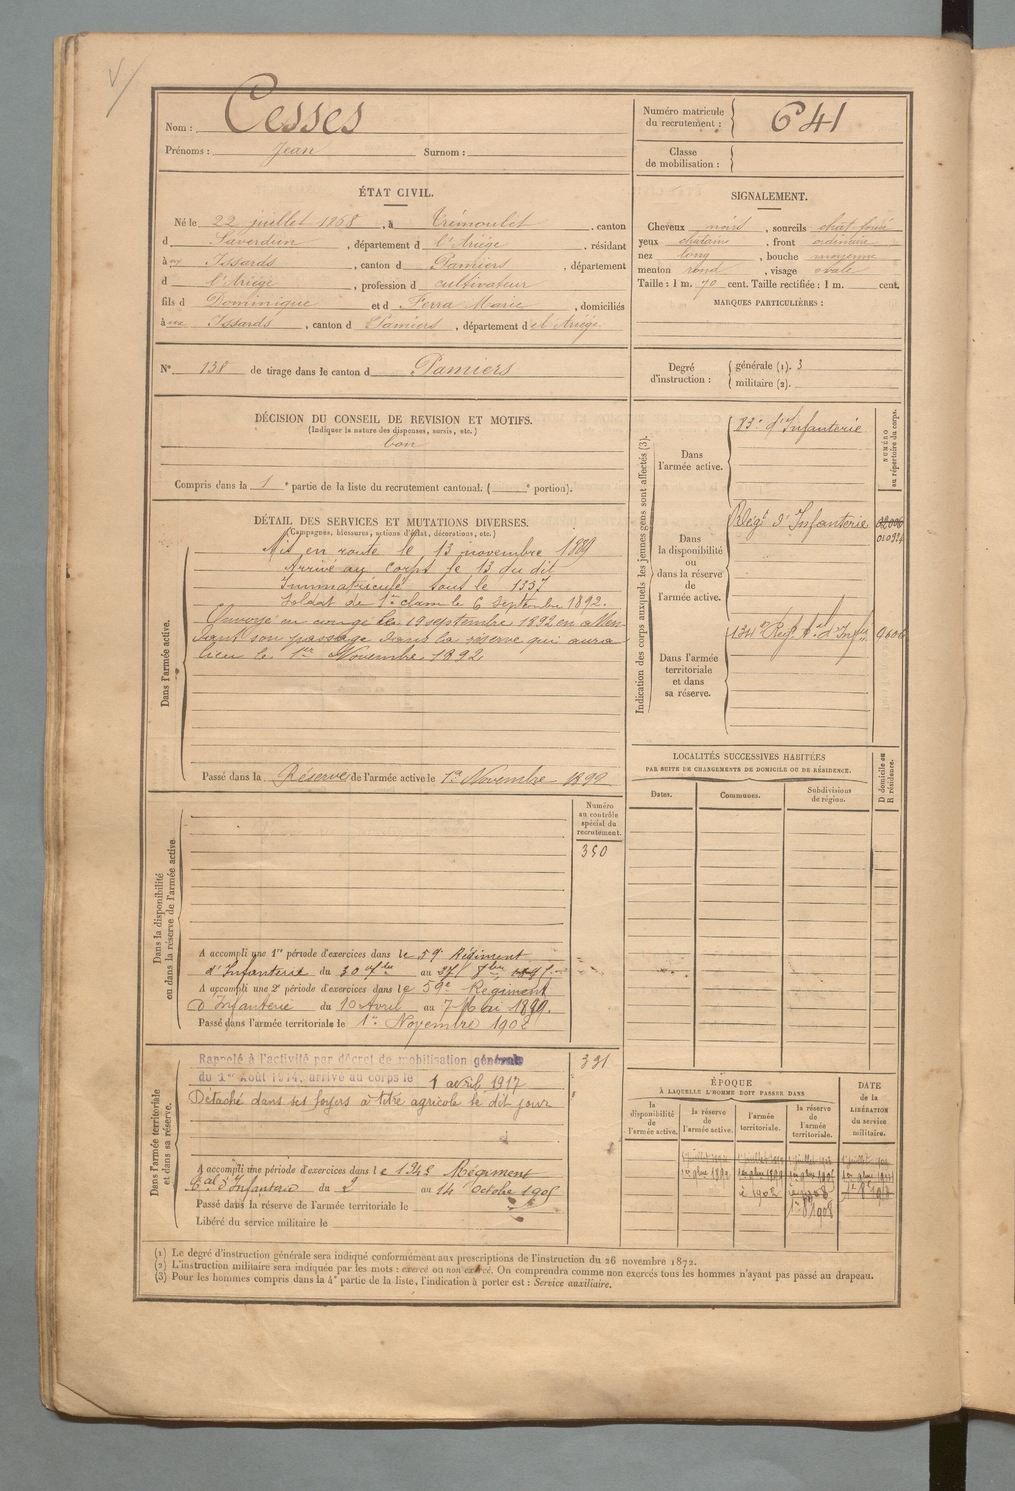 Nom : Cesses
Prénoms : Jean Surnom :
Numéro matricule du recrutement : 641
Classe de mobilisation :
ÉTAT CIVIL.
Né le 22 juillet 1868, à Trémoulet, canton
d Saverdun, département d l'Ariège, résidant
à aux Issards, canton d Pamiers, département
d l'Ariège, profession d cultivateur
fils d Dominique et d Ferra Marie, domiciliés
à aux Issards, canton d Pamiers, département d el Ariège.
SIGNALEMENT.
Cheveux noirs, sourcils chât foncé
yeux chatains, front ordinaire
nez long, bouche moyenne
menton rond, visage ovale
Taille : 1 m. 70 cent. Taille rectifiée : 1 m. cent.
MARQUES PARTICULIÈRES :
N° 138 de tirage dans le canton d Pamiers
Degré d'instruction : générale (1). 3
militaire (2).
DÉCISION DU CONSEIL DE REVISION ET MOTIFS.
(Indiquer la nature des dispenses, sursis, etc.)
bon
Compris dans la 1e partie de la liste du recrutement cantonal. ( e portion).
DÉTAIL DES SERVICES ET MUTATIONS DIVERSES.
(Campagnes, blessures, actions d'éclat, décorations, etc.)
Dans l'armée active.
Mis en route le 13 novembre 1889
Arrivé au corps le 13 du dit
Immatriculé sous le 1337
Soldat de 1re classe le 6 Septembre 1892.
Envoyé en congé le 19 septembre 1892 en atten-
dant son passage dans la réserve qui aura
lieu le 1er Novembre 1892
Passé dans la Réserve de l'armée active le 1er Novembre 1892
Indication des corps auxquels les jeunes gens sont affectés (3).
NUMÉRO au répertoire du corps.
Dans l'armée active.
83e d'Infanterie
Dans la disponibilité ou dans la réserve de l'armée active.
Régt d'Infanterie
Dans l'armée territoriale et dans sa réserve.
134e Régt
LOCALITÉS SUCCESSIVES HABITÉES
PAR SUITE DE CHANGEMENTS DE DOMICILE OU DE RÉSIDENCE.
Dates. Communes. Subdivisions de région. D domicile ou R résidence.
Dans la disponibilité ou dans la réserve de l'armée active.
Numéro au contrôle spécial du recrutement.
350
A accompli une 1re période d'exercices dans le 59e Régiment
d'Infanterie du 30 au
A accompli une 2e période d'exercices dans le 59e Régiment
d'Infanterie du 10 Avril au 7 Mai 1899.
Passé dans l'armée territoriale le 1er Novembre 1902
Dans l'armée territoriale et dans sa réserve.
Rappelé à l'activité par décret de mobilisation générale
du 1er Août 1914, arrivé au corps le 1 avril 1917
Détaché dans ses foyers à titre agricole le dit jour
391
A accompli une période d'exercices dans le 134e Régiment
d'Infanterie du 2 au 14 Octobre 1905
Passé dans la réserve de l'armée territoriale le
Libéré du service militaire le
ÉPOQUE
À LAQUELLE L'HOMME DOIT PASSER DANS
la disponibilité de l'armée active. la réserve de l'armée active. l'armée territoriale. la réserve de l'armée territoriale.
DATE de la LIBÉRATION du service militaire.
(1) Le degré d'instruction générale sera indiqué conformément aux prescriptions de l'instruction du 26 novembre 1872.
(2) L'instruction militaire sera indiquée par les mots : exercé ou non exercé. On comprendra comme non exercés tous les hommes n'ayant pas passé au drapeau.
(3) Pour les hommes compris dans la 4e partie de la liste, l'indication à porter est : Service auxiliaire.